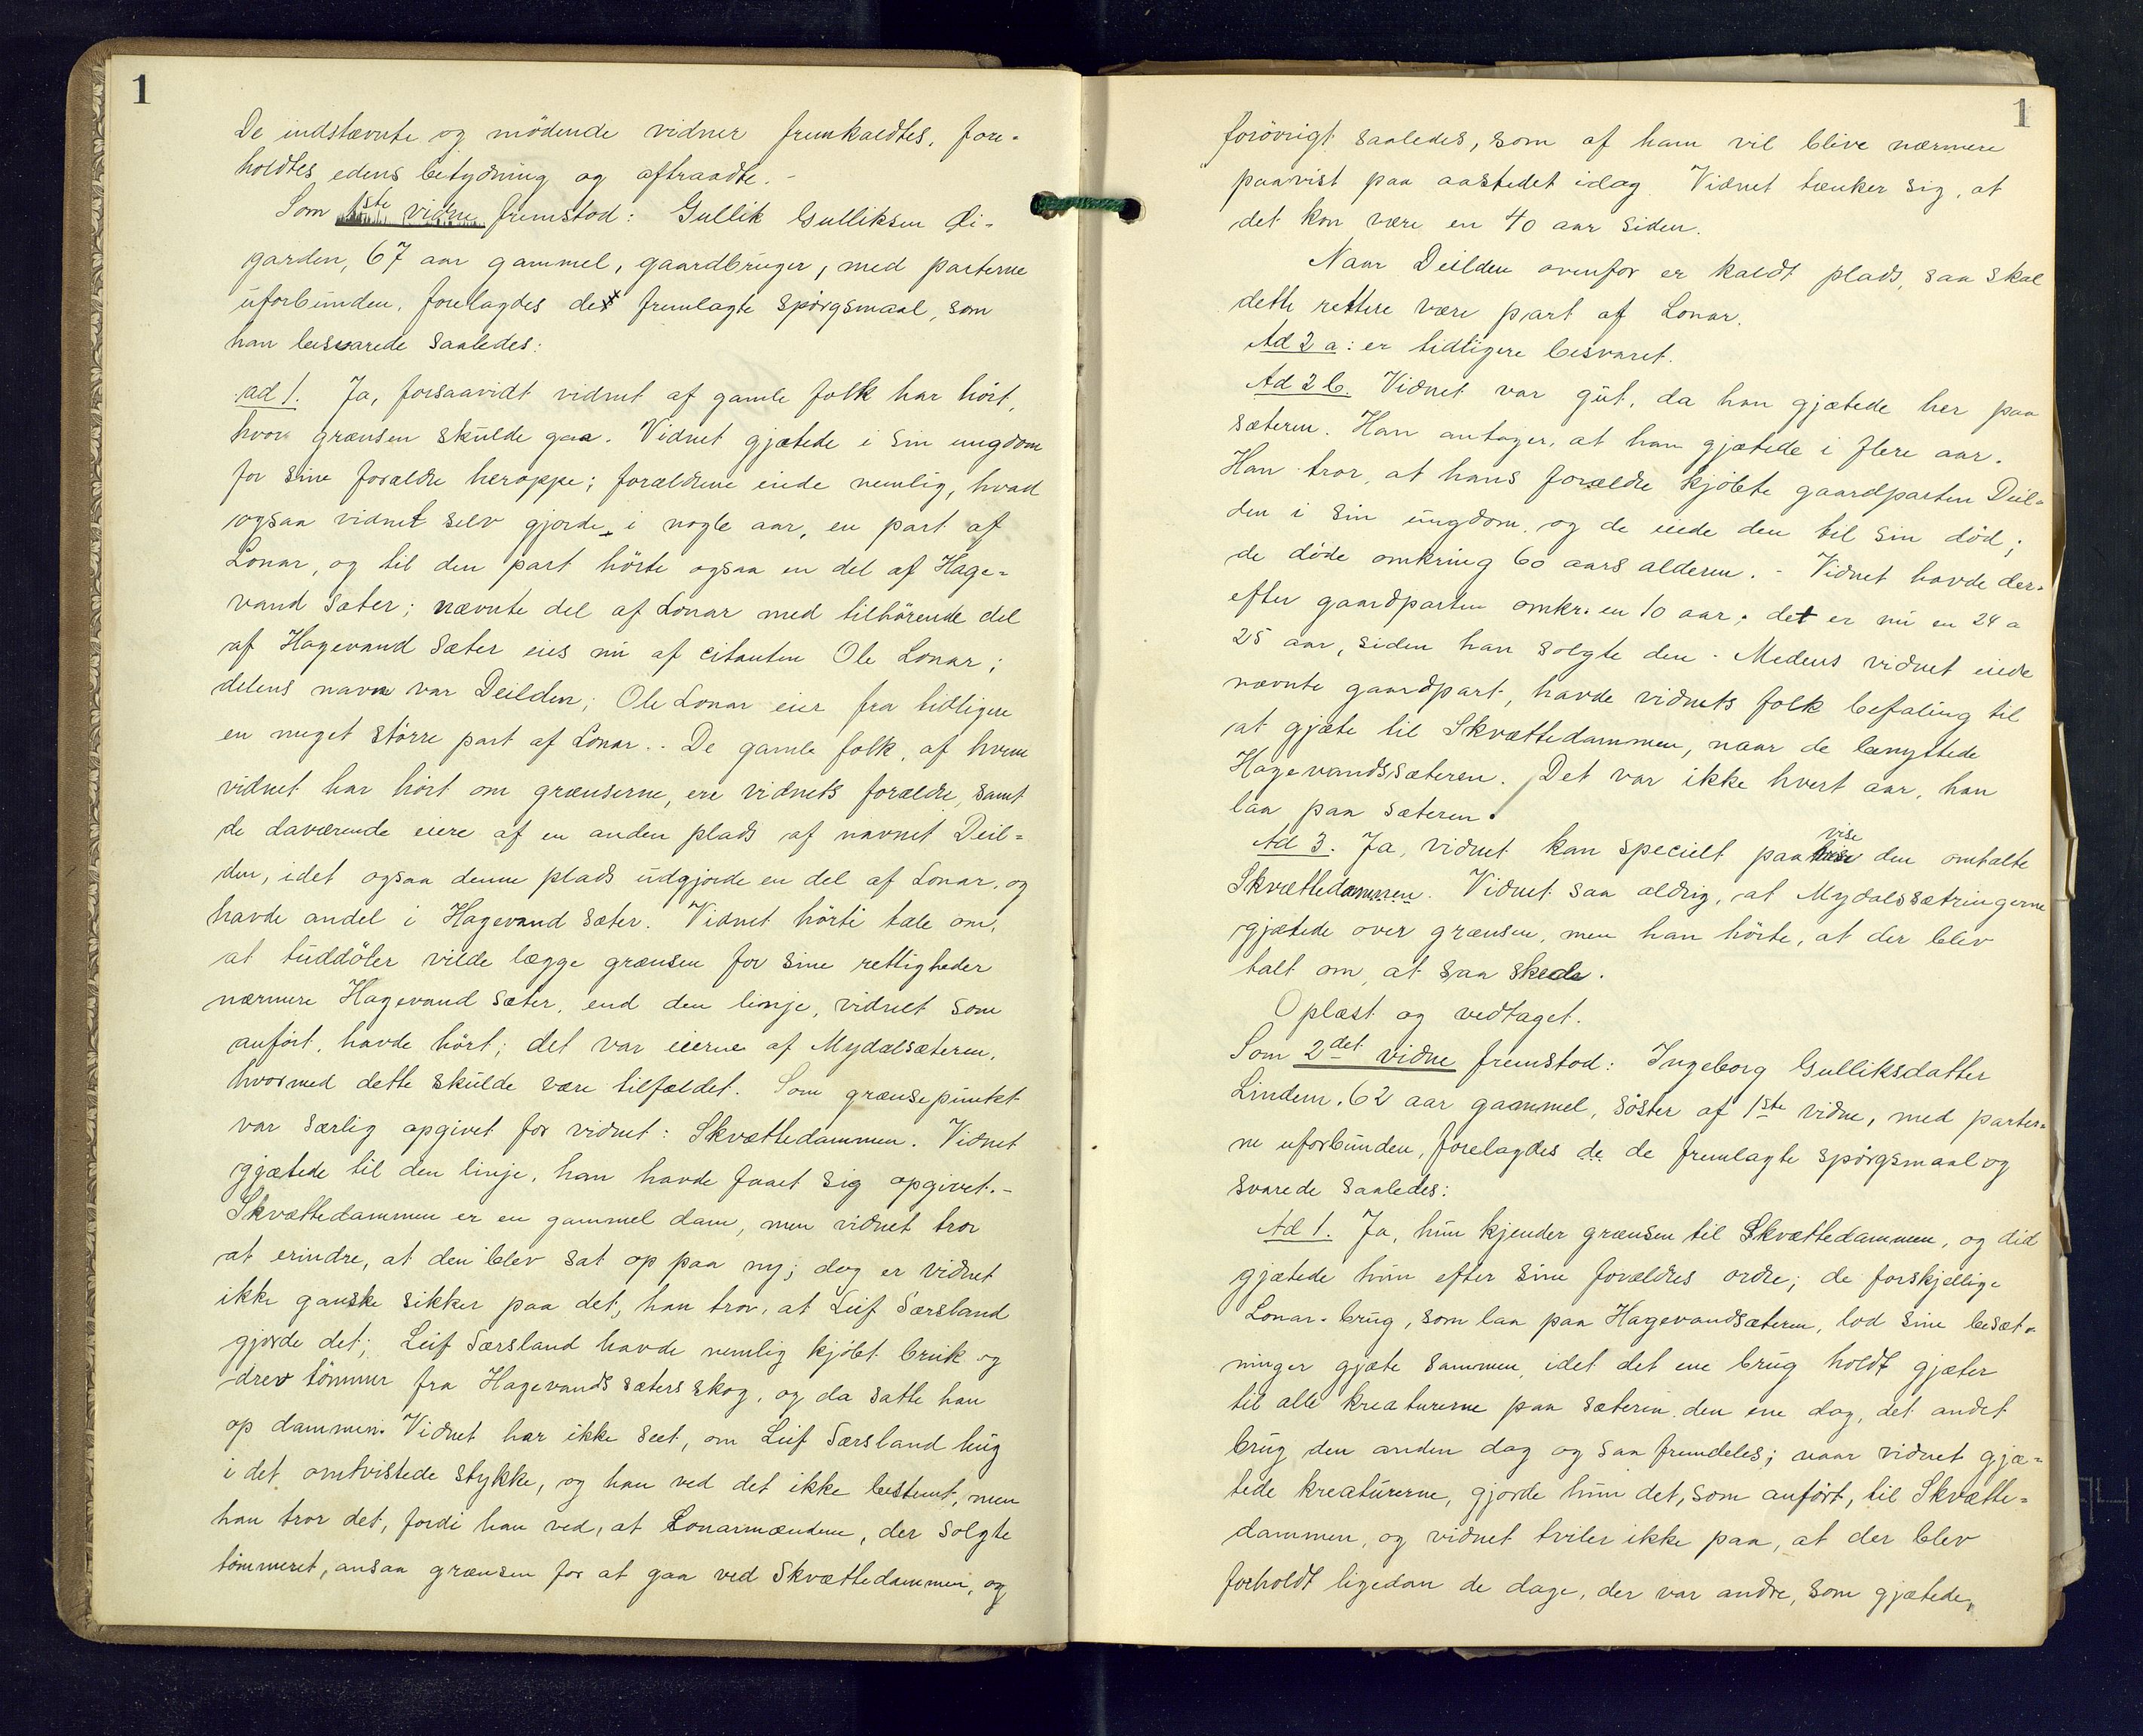 1
De indstævnte og mödende vidner fremkaldtes, fore-
holdtes edens betydning og aftraadte. -
Som 1ste vidne fremstod: Gullik Gulliksen Öi-
garden, 67 aar gammel, gaardbruger, med parterne
uforbunden, forelagdes de fremlagte spörgsmaal, som
han besvarede saaledes:
ad 1. Ja, forsaavidt vidnet af gamle folk har hört,
hvor grænsen skulde gaa. Vidnet gjætede i sin ungdom
for sine forældre heroppe; forældrene eiede nemlig, hvad
ogsaa vidnet selv gjorde, i nogle aar, en part af
Lonar, og til den part hörte ogsaa en del af Hage-
vand sæter; nævnte del af Lonar med tilhörende del
af Hagevand sæter eies nu af citanten Ole Lonar;
delens navn var Deilden; Ole Lonar eier fra tidligere
en meget större part af Lonar. - De gamle folk, af hvem
vidnet har hört om grænserne, ere vidnets forældre, samt
de daværende eiere af en anden plads af navnet Deil-
den, idet ogsaa denne plads udgjorde en del af Lonar, og
havde andel i Hagevand sæter. Vidnet hörte tale om,
at tuddöler vilde lægge grænsen for sine rettigheder
nærmere Hagevand sæter, end den linje, vidnet som
anfört, havde hört; det var eierne af Mydalsæteren,
hvormed dette skulde være tilfældet. Som grænsepunkt
var særlig opgivet for vidnet: Skvættedammen. Vidnet
gjætede til den linje, han havde faaet sig opgivet. -
Skvættedammen er en gammel dam, men vidnet tror
at erindre, at den blev sat op paa ny; dog er vidnet
ikke ganske sikker paa det; han tror, at Leif Særsland
gjorde det; Leif Særsland havde nemlig kjöbt bruk og
drev tömmer fra Hagevands sæters skog, og da satte han
op dammen. Vidnet har ikke seet, om Leif Særsland hug
i det omtvistede stykke, og han ved det ikke bestemt, men
han tror det, fordi han ved, at Lonarmændene, der solgte
tömmeret, ansaa grænsen for at gaa ved Skvættedammen, og
1
forövrigt saaledes, som af ham vil blive nærmere
paavist paa aastedet idag. Vidnet tænker sig, at
det kan være en 40 aar siden.
Naar Deilden ovenfor er kaldt plads, saa skal
dette rettere være part af Lonar.
Ad 2 a: er tidligere besvaret.
Ad 2 b. Vidnet var gut, da han gjætede her paa
sæteren. Han antager, at han gjætede i flere aar.
Han tror, at hans forældre kjöbte gaardparten Deil-
den i sin ungdom og de eiede den til sin död;
de döde omkring 60 aars alderen. - Vidnet havde der-
efter gaardparten omkr. en 10 aar; det er nu en 24 a
25 aar, siden han solgte den. Medens vidnet eiede
nævnte gaardpart, havde vidnets folk befaling til
at gjæte til Skvættedammen, naar de benyttede
Hagevandssæteren. Det var ikke hvert aar, han
laa paa sæteren.
Ad 3. Ja, vidnet kan specielt paavise den omtalte
Skvættedammen. Vidnet saa aldrig, at Mydalssætringerne
gjætede over grænsen, men han hörte, at der blev
talt om, at saa skede.
Oplæst og vedtaget.
Som 2det vidne fremstod: Ingeborg Gulliksdatter
Lindem, 62 aar gammel, söster af 1ste vidne, med parter-
ne uforbunden, forelagdes de de fremlagte spörgsmaal og
svarede saaledes:
Ad 1. Ja, hun kjender grænsen til Skvættedammen, og did
gjætede hun efter sine forældres ordre; de forskjellige
Lonar-brug, som laa paa Hagevandsæteren, lod sine besæt-
ninger gjæte sammen, idet det ene brug holdt gjæter
til alle kreaturerne paa sæteren den ene dag, det andet
brug den anden dag og saa fremdeles; naar vidnet gjæ-
tede kreaturerne, gjorde hun det, som anfört, til Skvætte-
dammen, og vidnet tviler ikke paa, at der blev
forholdt ligedan de dage, der var andre, som gjætede,